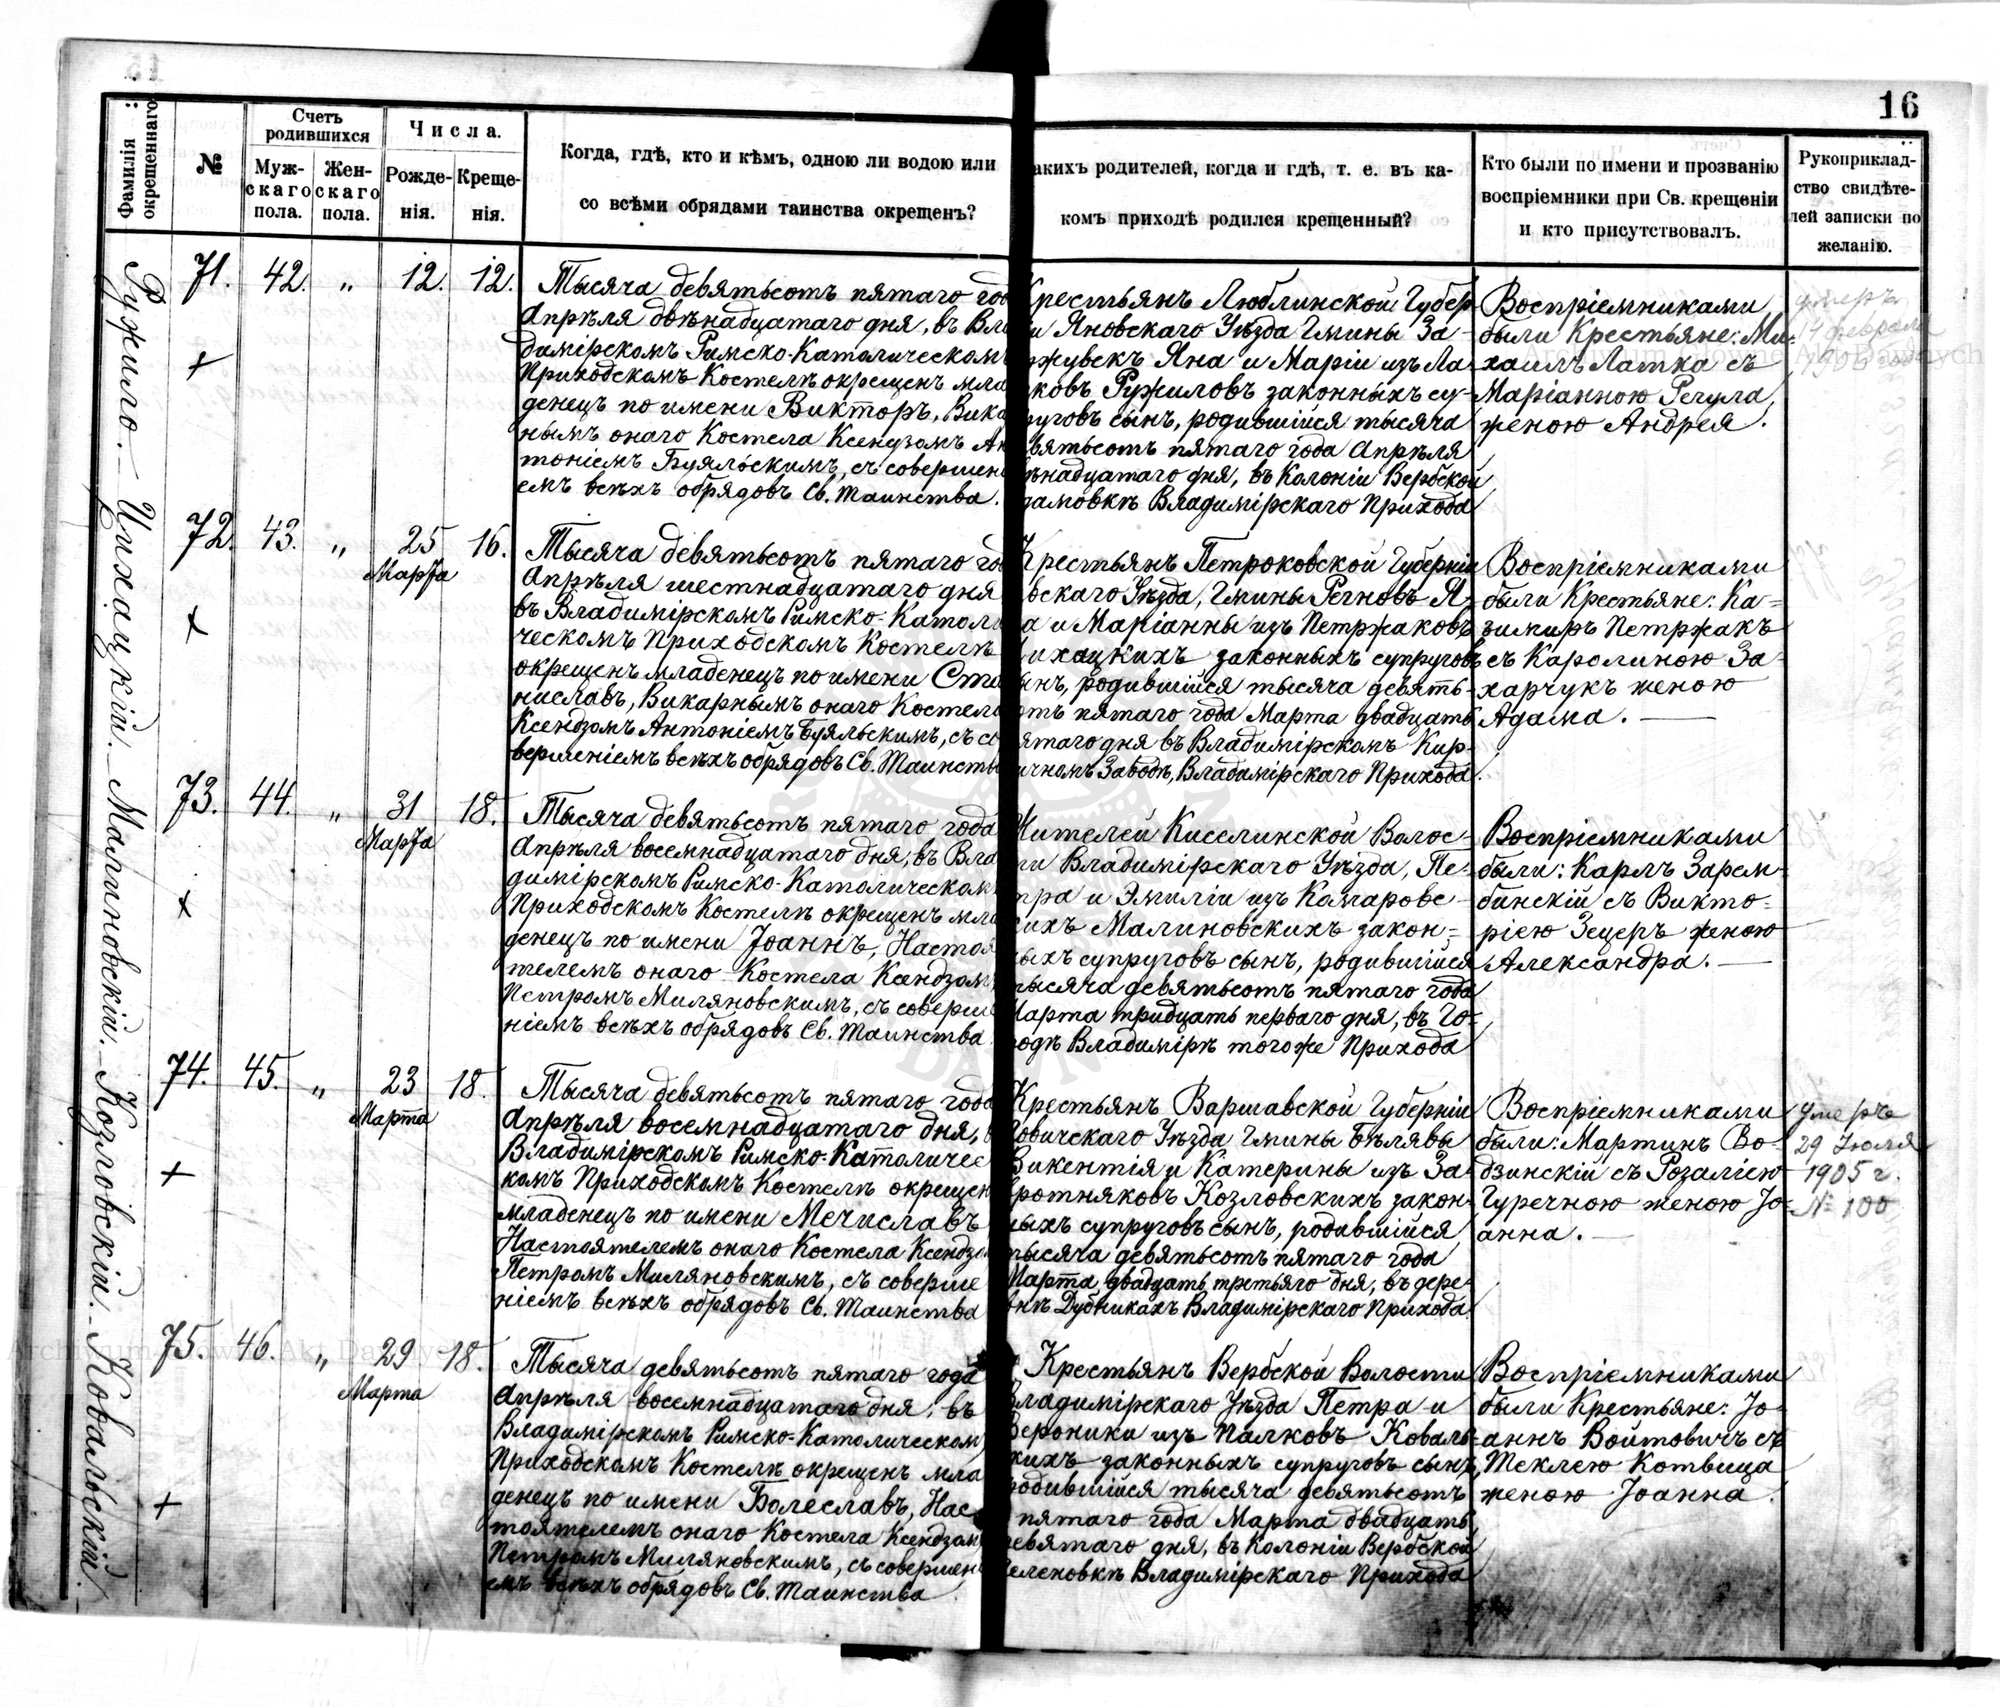 16
Фамилія окрещеннаго.
№
Счетъ родившихся
Муж-
скаго
пола.
Жен-
скаго
пола.
Числа.
Рожде-
нія.
Креще-
нія.
Когда, гдѣ, кто и кѣмъ, одною ли водою или
со всѣми обрядами таинства окрещенъ?
акихъ родителей, когда и гдѣ, т. е. въ ка-
комъ приходѣ родился крещенный?
Кто были по имени и прозванію
воспріемники при Св. крещеніи
и кто присутствовалъ.
Рукоприклад-
ство свидѣте-
лей записки по
желанію.
Ружило. — Цихацкій. — Малиновскій. — Козловскій. — Ковальскій.
71. 42. „ 12. 12.
+
Тысяча девятьсотъ пятаго год
Апрѣля двѣнадцатаго дня, въ Вла
димірскомъ Римско-Католическомъ
Приходскомъ Костелѣ окрещенъ мла
денецъ по имени Викторъ, Вика
нымъ онаго Костела Ксендзомъ Ан
тоніемъ Буяльскимъ, съ совершен
емъ всѣхъ обрядовъ Св. Таинства.
Крестьянъ Люблинской Губер
и Яновскаго Уѣзда Гмины За-
жувекъ Яна и Маріи изъ Ла-
ковъ Ружиловъ законныхъ су-
руговъ сынъ, родившійся тысяча
вятьсотъ пятаго года Апрѣля
ѣнадцатаго дня, въ Колоніи Вербской
дамовкѣ Владимірскаго Прихода
Воспріемниками
были Крестьяне: Ми-
хаилъ Латка съ
Маріанною Регула,
женою Андрея.
умеръ
14 февраля
1906 года
72. 43. „ 25 Марта 16.
+
Тысяча девятьсотъ пятаго го
Апрѣля шестнадцатаго дня
въ Владимірскомъ Римско-Катол
ческомъ Приходскомъ Костелѣ
окрещенъ младенецъ по имени Ста
ниславъ, Викарнымъ онаго Костела
Ксендзомъ Антоніемъ Буяльскимъ, съ со
вершеніемъ всѣхъ обрядовъ Св. Таинств
Крестьянъ Петроковской Губерніи
вскаго Уѣзда, Гмины Регновъ Я-
а и Маріанны изъ Петржаковъ
ихацкихъ законныхъ супруговъ
ынъ, родившійся тысяча девять-
отъ пятаго года Марта двадцать
ятаго дня въ Владимірскомъ Кир-
ичномъ Заводѣ, Владимірскаго Прихода
Воспріемниками
были Крестьяне: Ка-
зимиръ Петржакъ
съ Каролиною За-
харчукъ женою
Адама. —
73. 44. „ 31 Марта 18.
+
Тысяча девятьсотъ пятаго года
Апрѣля восемнадцатаго дня, въ Вла
димірскомъ Римско-Католическом
Приходскомъ Костелѣ окрещенъ мла
денецъ по имени Іоаннъ, Настоя
телемъ онаго Костела Ксендзом
Петромъ Миляновскимъ, съ соверше
ніемъ всѣхъ обрядовъ Св. Таинства
Жителей Киселинской Волос-
ти Владимірскаго Уѣзда, Пе-
тра и Эмиліи изъ Комаровс-
кихъ Малиновскихъ закон-
ныхъ супруговъ сынъ, родившійся
тысяча девятьсотъ пятаго года
Марта тридцать перваго дня, въ Го-
родѣ Владимірѣ тогоже Прихода
Воспріемниками
были: Карлъ Зарем-
бинскій съ Викто-
ріею Зецеръ женою
Александра. —
74. 45. „ 23 Марта 18.
+
Тысяча девятьсотъ пятаго года
Апрѣля восемнадцатаго дня, в
Владимірскомъ Римско-Католичес
комъ Приходскомъ Костелѣ окрещен
младенецъ по имени Мечиславъ
Настоятелемъ онаго Костела Ксендзо
Петромъ Миляновскимъ, съ соверше
ніемъ всѣхъ обрядовъ Св. Таинства
Крестьянъ Варшавской Губерніи
Ловичскаго Уѣзда Гмины Бѣлявы
Викентія и Катерины изъ За-
вротняковъ Козловскихъ закон-
ныхъ супруговъ сынъ, родившійся
тысяча девятьсотъ пятаго года
Марта двадцать третьяго дня, въ дере-
внѣ Дубникахъ Владимірскаго Прихода.
Воспріемниками
были: Мартинъ Во-
дзинскій съ Розаліею
Гуречною женою Іо-
анна. —
умеръ
29 Іюля
1905 г.
№ 100
75. 46. „ 29 Марта 18.
+
Тысяча девятьсотъ пятаго года
Апрѣля восемнадцатаго дня, въ
Владимірскомъ Римско-Католическом
Приходскомъ Костелѣ окрещенъ мла
денецъ по имени Болеславъ, Нас
тоятелемъ онаго Костела Ксендзом
Петромъ Миляновскимъ, съ совершен
емъ всѣхъ обрядовъ Св. Таинства
Крестьянъ Вербской Волости
Владимірскаго Уѣзда Петра и
Вероники изъ Палковъ Коваль-
кихъ законныхъ супруговъ сынъ,
родившійся тысяча девятьсотъ
пятаго года Марта двадцать
девятаго дня, въ Колоніи Вербской
Зеленовкѣ Владимірскаго Прихода
Воспріемниками
были Крестьяне: Іо-
аннъ Войтовичъ съ
Теклею Котвица
женою Іоанна.